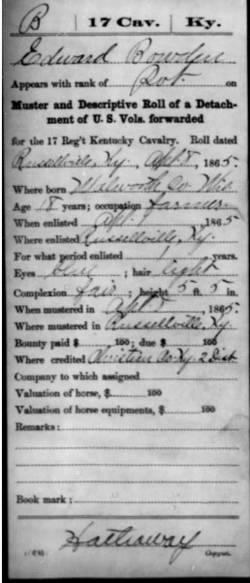 B | 17 Cav. | Ky.
Edward Bowden
Appears with rank of Pvt. on
Muster and Descriptive Roll of a Detach-
ment of U. S. Vols. forwarded
for the 17 Reg't Kentucky Cavalry. Roll dated
Russellville, Ky., Apl 8, 1865.
Where born Walworth Co. Wis.
Age 18 years; occupation farmer
When enlisted Apl. 1, 1865
Where enlisted Russellville, Ky.
For what period enlisted years.
Eyes blue; hair light
Complexion fair; height 5 ft. 5 in.
When mustered in Apl 8, 1865.
Where mustered in Russellville, Ky.
Bounty paid $ 100; due $ 100
Where credited Christian Co. Ky 2 Dist
Company to which assigned
Valuation of horse, $ 100
Valuation of horse equipments, $ 100
Remarks:
Book mark:
Hathaway
Copyist.